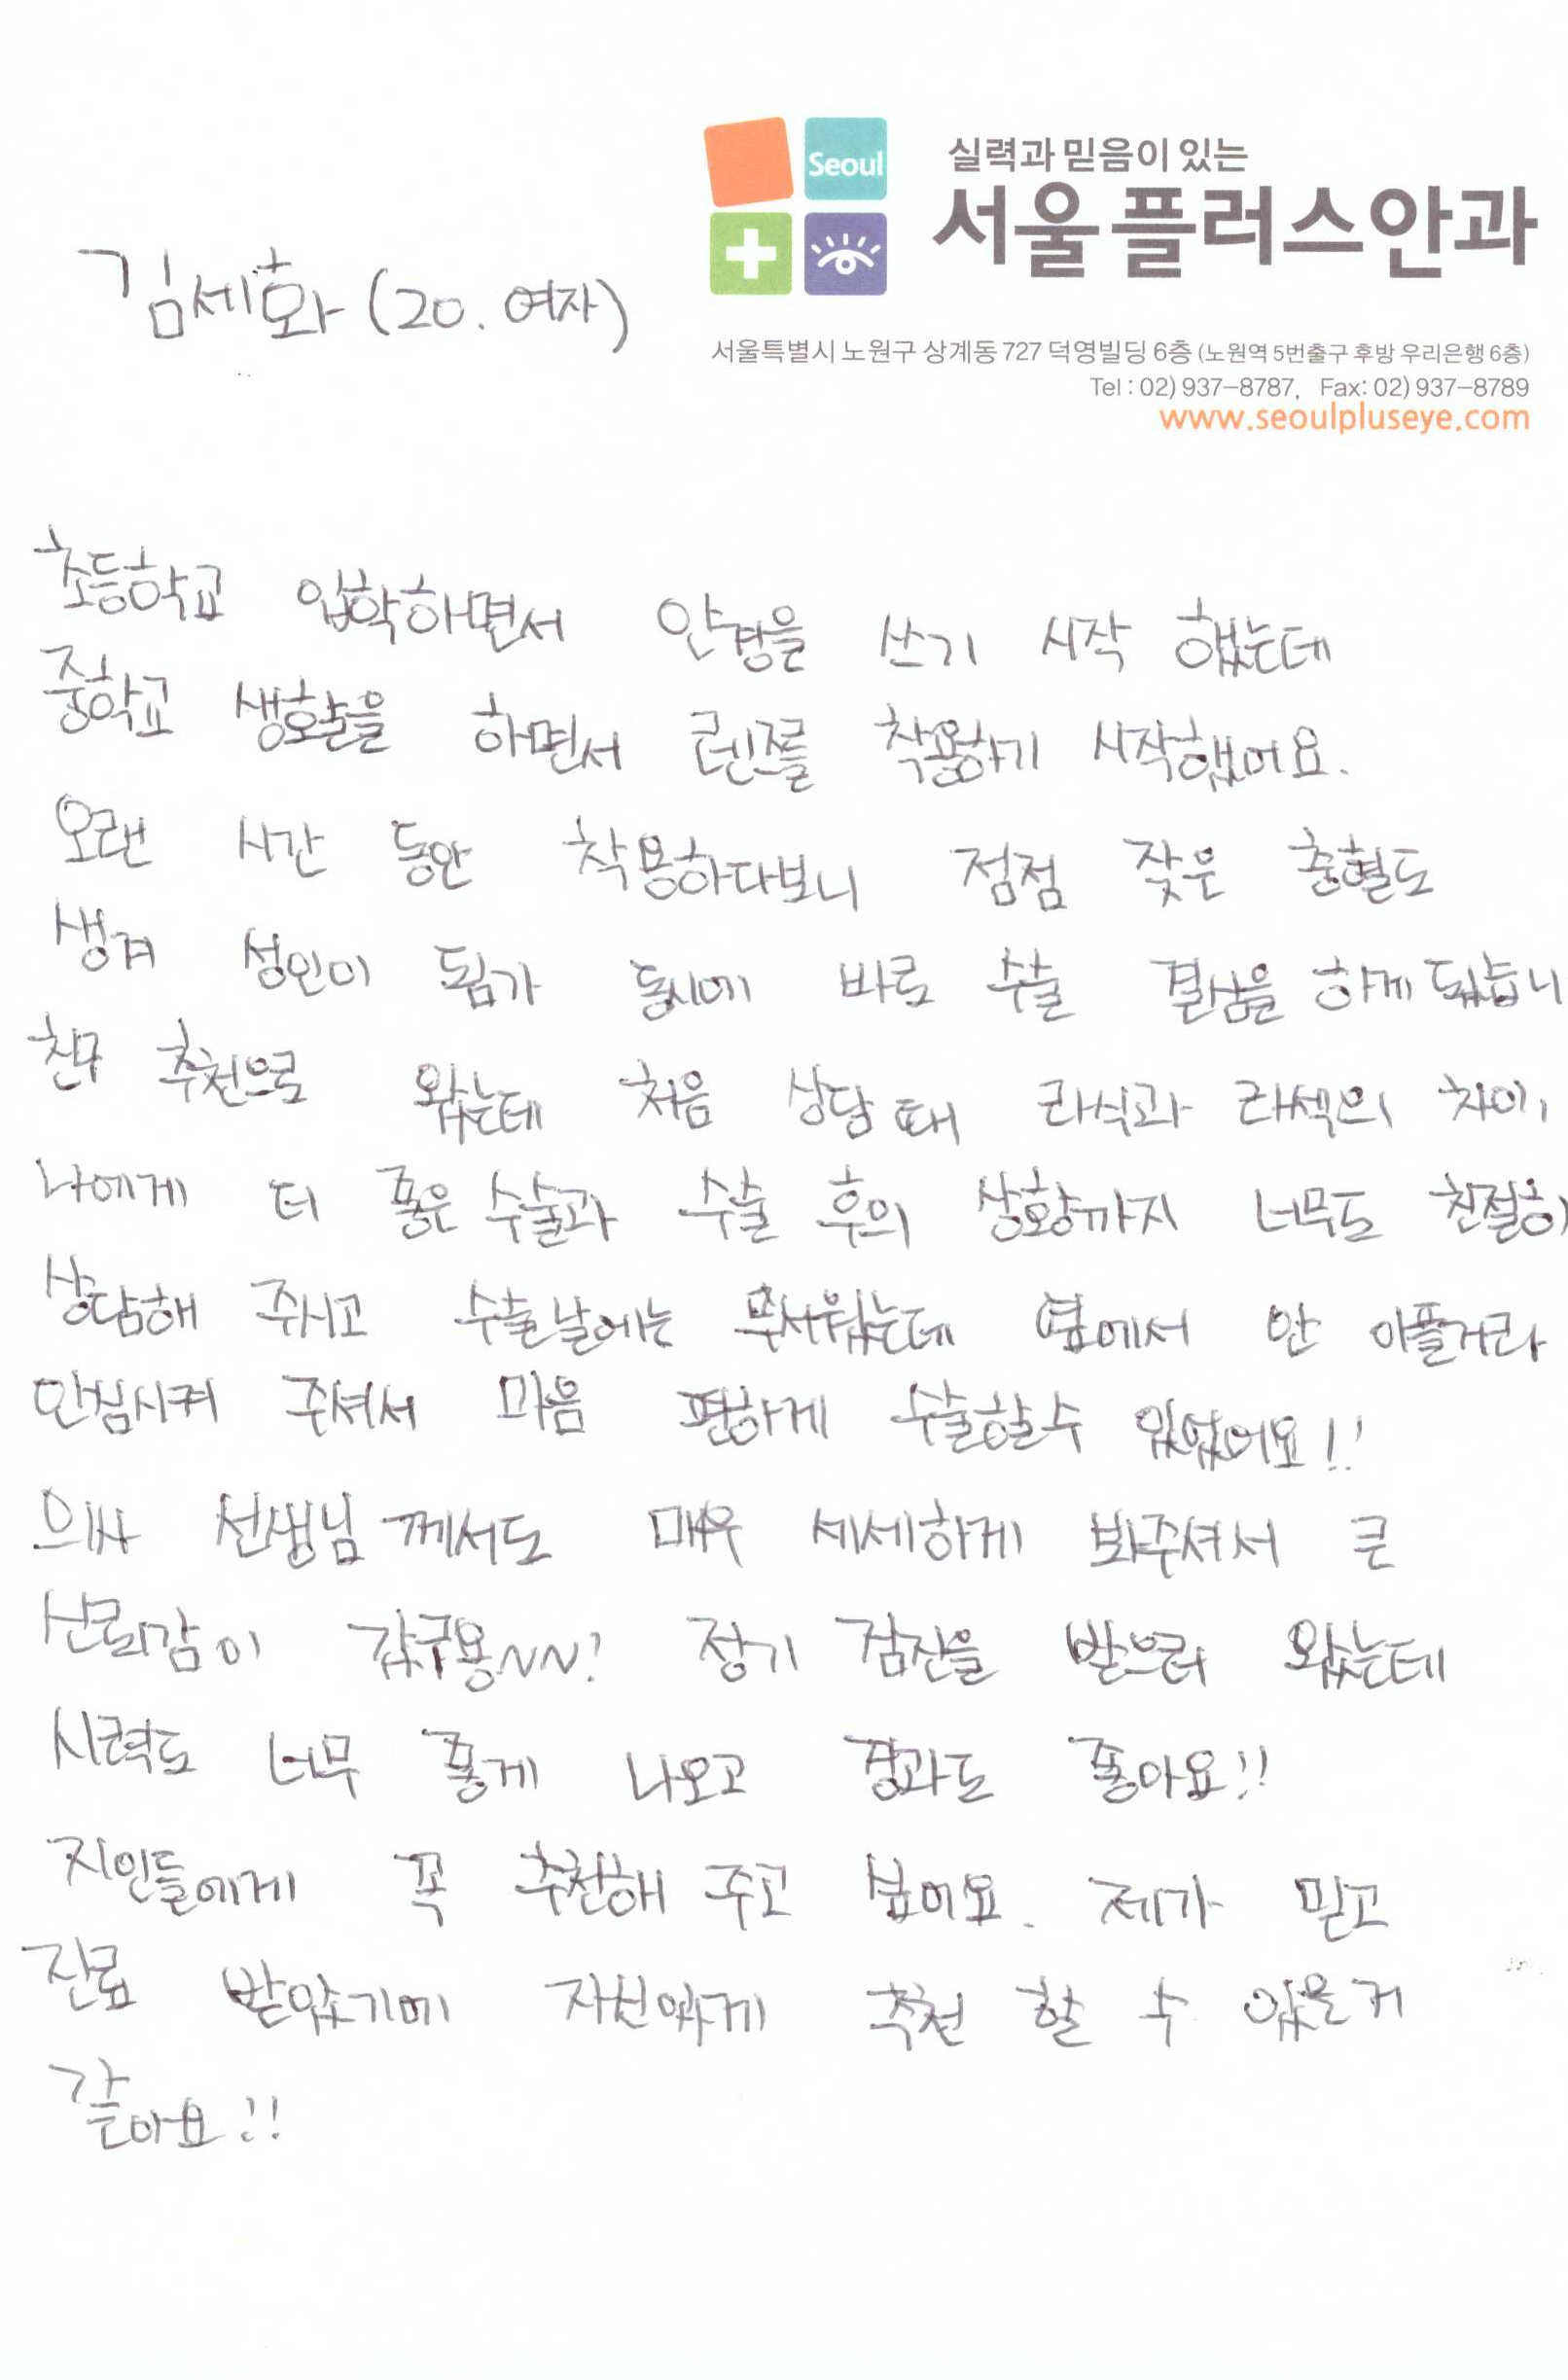 Seoul
실력과 믿음이 있는
서울플러스안과
김세화 (20. 여자)
서울특별시 노원구 상계동 727 덕영빌딩 6층 (노원역 5번출구 후방 우리은행 6층)
Tel : 02) 937-8787, Fax: 02) 937-8789
www.seoulpluseye.com
초등학교 입학하면서 안경을 쓰기 시작 했는데
중학교 생활을 하면서 렌즈를 착용하기 시작했어요.
오랜 시간 동안 착용하다보니 점점 잦은 충혈도
생겨 성인이 됨가 동시에 바로 수술 결심을 하게 됐습니
친구 추천으로 왔는데 처음 상담 때 라식과 라섹의 차이,
나에게 더 좋은 수술과 수술 후의 상황까지 너무도 친절히
상담해 주시고 수술날에는 무서웠는데 옆에서 안 아플거라
안심시켜 주셔서 마음 편하게 수술할수 있었어요!!
의사 선생님 께서도 매우 세세하게 봐주셔서 큰
신뢰감이 갔구용~~! 정기 검진을 받으러 왔는데
시력도 너무 좋게 나오고 경과도 좋아요!!
지인들에게 꼭 추천해 주고 싶어요. 제가 믿고
진료 받았기에 자신있게 추천 할 수 있을거
같아요!!